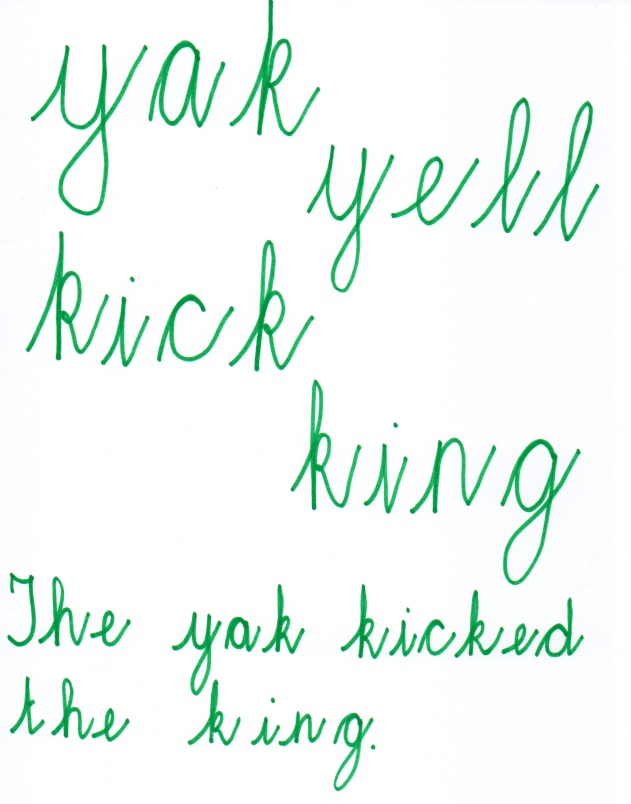 yak
yell
kick
king
The yak kicked
the king.